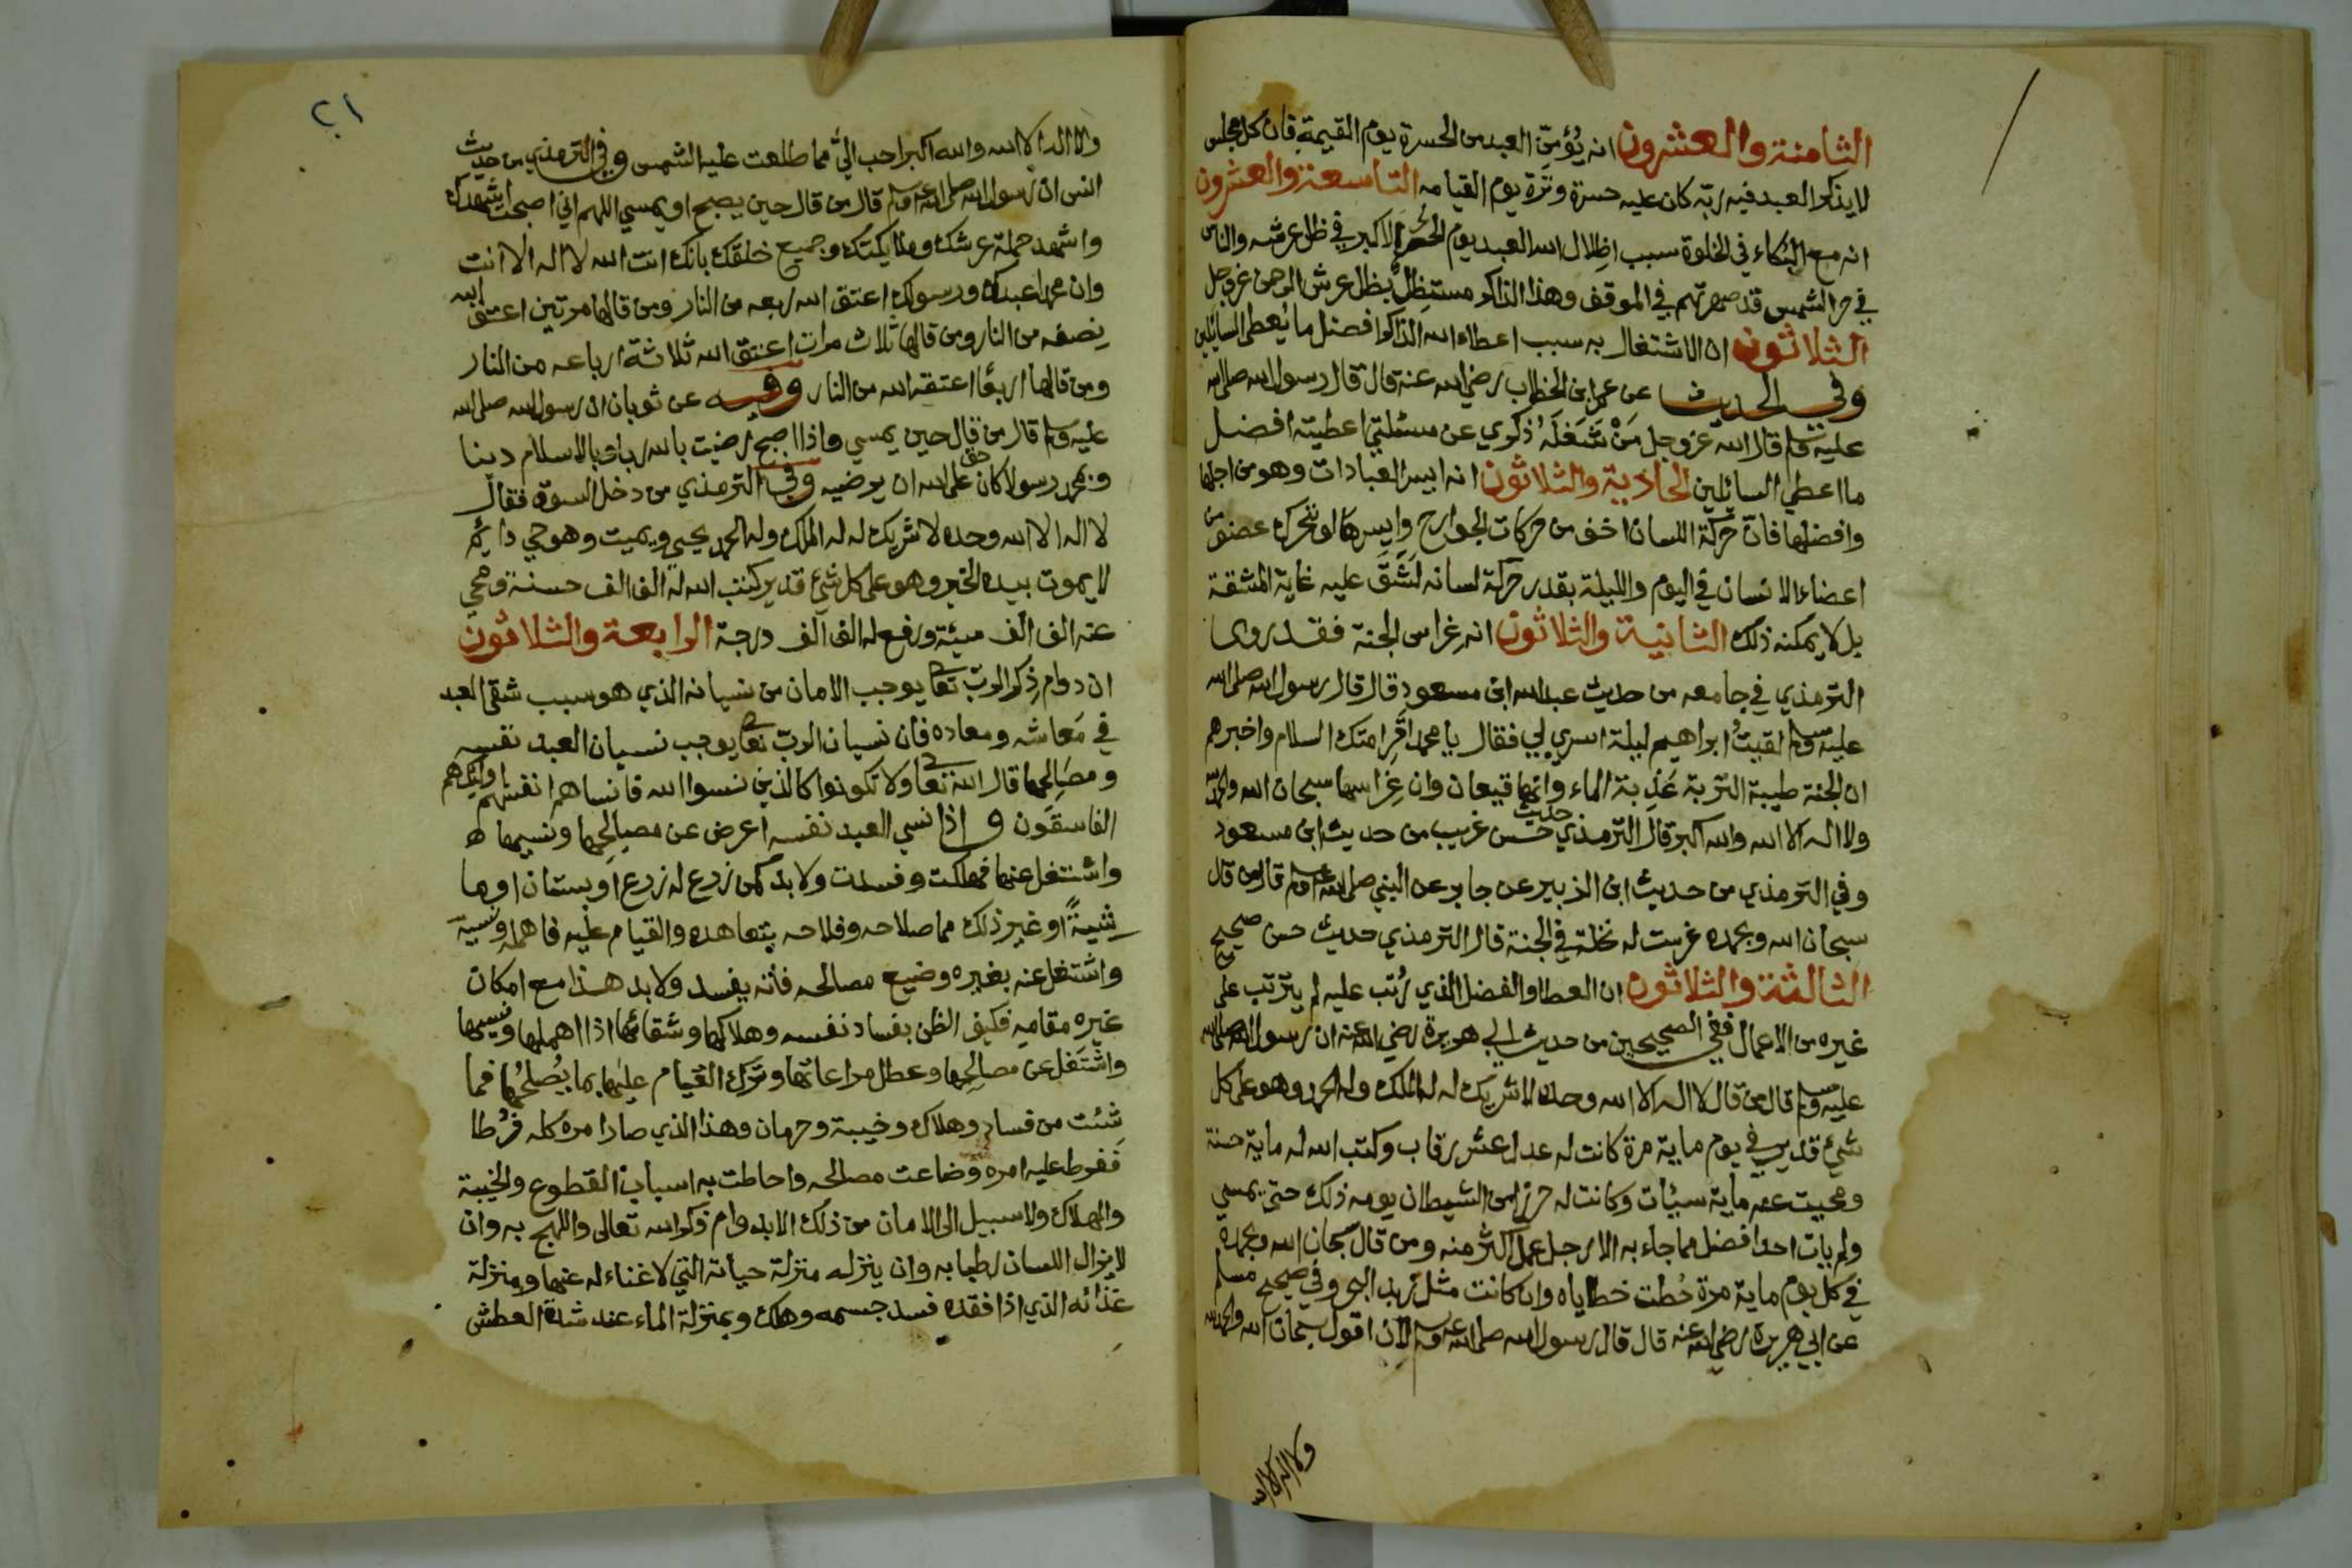 الثامنة والعشرون انه يُؤمِّن العبد من الحسرة يوم القيمة فان كل مجلس
لا يذكر العبد فيه ربّه كان عليه حسرة وتَرة يوم القيامه التاسعة والعشرون
انه مع البُكاء في الخلوة سبب اظلال الله العبد يوم الحر الاكبر في ظل عرشه والناس
في حر الشمس قد صهرتهم في الموقف وهذا الذاكر مستظِلّ بظل عرش الرحمن عز وجل
الثلاثون ان الاشتغال به سبب اعطاء الله الذاكر افضل ما يُعطى السائلين
وفي الحديث عن عمر ابن الخطاب رضي الله عنه قال قال رسول الله صلى الله
عليه وسلم قال الله عز وجل مَنْ شَغَلَهُ ذكري عن مسئلتي اعطيته افضل
ما اعطي السائلين الحادية والثلاثون انه ايسر العبادات وهو من اجلها
وافضلها فان حركة اللسان اخف من حركات الجوارح وايسرها لو تحرك عضو من
اعضاء الانسان في اليوم والليلة بقدر حركة لسانه لَشَقَّ عليه غاية المشقة
بل لا يمكنه ذلك الثانية والثلاثون انه غراس الجنة فقد روى
الترمذي في جامعه من حديث عبد الله ابن مسعود قال قال رسول الله صلى الله
عليه وسلم لقيتُ ابراهيم ليلة اسري بي فقال يا محمد اقرِا امتك السلام واخبرهم
ان الجنة طيبة التربة عَذِبة الماء وانها قيعان وان غِراسها سبحان الله والحمد لله
ولا اله الا الله والله اكبر قال الترمذي حديث حسن غريب من حديث ابن مسعود
وفي الترمذي من حديث ابي الزبير عن جابر عن النبي صلى الله عليه وسلم قال من قال
سبحان الله وبحمده غرست له نخلة في الجنة قال الترمذي حديث حسن صحيح
الثالثة والثلاثون ان العطا والفضل الذي رُتب عليه لم يترتب على
غيره من الاعمال ففي الصحيحين من حديث ابي هريرة رضي الله عنه ان رسول الله صلى الله
عليه وسلم قال من قال لا اله الا الله وحده لا شريك له له الملك وله الحمد وهو على كل
شيء قدير في يوم ماية مرة كانت له عدل عشر رقاب وكتب الله له ماية حسنة
ومحيت عنه ماية سيئات وكانت له حرز من الشيطان يومه ذلك حتى يمسي
ولم يات احد افضل مما جاء به الا رجل عمل اكثر منه ومن قال سبحان الله وبحمده
في كل يوم ماية مرة حُطت خطاياه وان كانت مثل زبد البحر وفي صحيح مسلم
عن ابي هريرة رضي الله عنه قال قال رسول الله صلى الله عليه وسلم لان اقول سبحان الله والحمد لله
ولا اله الا الله
٢١
ولا اله الا الله والله اكبر احب اليَّ مما طلعت عليه الشمس وفي الترمذي من حديث
انس ان رسول الله صلى الله عليه وسلم قال من قال حين يصبح او يمسي اللهم اني اصبحت اشهدك
واشهد حملة عرشك وملايكتك وجميع خلقك بانك انت الله لا اله الا انت
وان محمدا عبدك ورسولك اعتق الله ربعه من النار ومن قالها مرتين اعتق الله
نصفه من النار ومن قالها ثلاث مرات اعتق الله ثلاثة ارباعه من النار
ومن قالها اربعًا اعتقه الله من النار وفيه عن ثوبان ان رسول الله صلى الله
عليه وسلم قال من قال حين يمسي واذا اصبح رضيت بالله ربا وبالاسلام دينا
وبمحمد رسولا كان حق على الله ان يرضيه وفي الترمذي من دخل السوق فقال
لا اله الا الله وحده لا شريك له له الملك وله الحمد يحيي ويميت وهو حي دايم
لا يموت بيده الخير وهو على كل شيء قدير كتب الله له الف الف حسنة ومحي
عنه الف الف سيئة ورفع له الف الف درجة الرابعة والثلاثون
ان دوام ذكر الربّ تعالى يوجب الامان من نسيانه الذي هو سبب شقى العبد
في مَعاشه ومعاده فان نسيان الربّ تعالى يوجب نسيان العبد نفسه
ومصَالِحها قال الله تعالى ولا تكونوا كالذين نسوا الله فانساهم انفسهم اولئك هم
الفاسقون و اذا نسي العبد نفسه اعرض عن مصالِحها ونسيها
واشتغل عنها فهلكت وفسدت ولا بد كمن زرع له زرع او بستان او ما
شيةً او غير ذلك مما صلاحه وفلاحه بتعاهده والقيام عليه فاهمله ونسيه
واشتغل عنه بغيره وضيع مصالحه فانه يفسد ولا بد هذا مع امكان
غيره مقامه فكيف الظن بفساد نفسه وهلاكها وشقائها اذا اهملها ونسيها
واشتغل عن مصالِحها وعطل مراعاتها وترك القيام عليها بما يُصلِحُها فما
شِئت من فساد وهلاك وخيبة وحرمان وهذا الذي صار امره كله فُرُطا
فَفرط عليه امره وضاعت مصالحه واحاطت به اسباب القطوع والخيبة
والهلاك ولا سبيل الى الامان من ذلك الا بدوام ذكر الله تعالى واللهج به وان
لا يزال اللسان رطبا به وان ينزله منزلة حياته التي لا غناء له عنها ومنزلة
غذائه الذي اذا فقده فسد جسمه وهلك وبمنزلة الماء عند شدة العطش